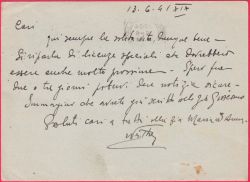 13.6.41 XIX
Cari
qui sempre la solita vita, dunque bene -
Si parla di licenze speciali che dovrebbero
essere anche molto prossime - Spero fra
due o tre giorni potervi dare notizie sicure -
Immagino che avrete già scritto al
Saluti cari a tutti